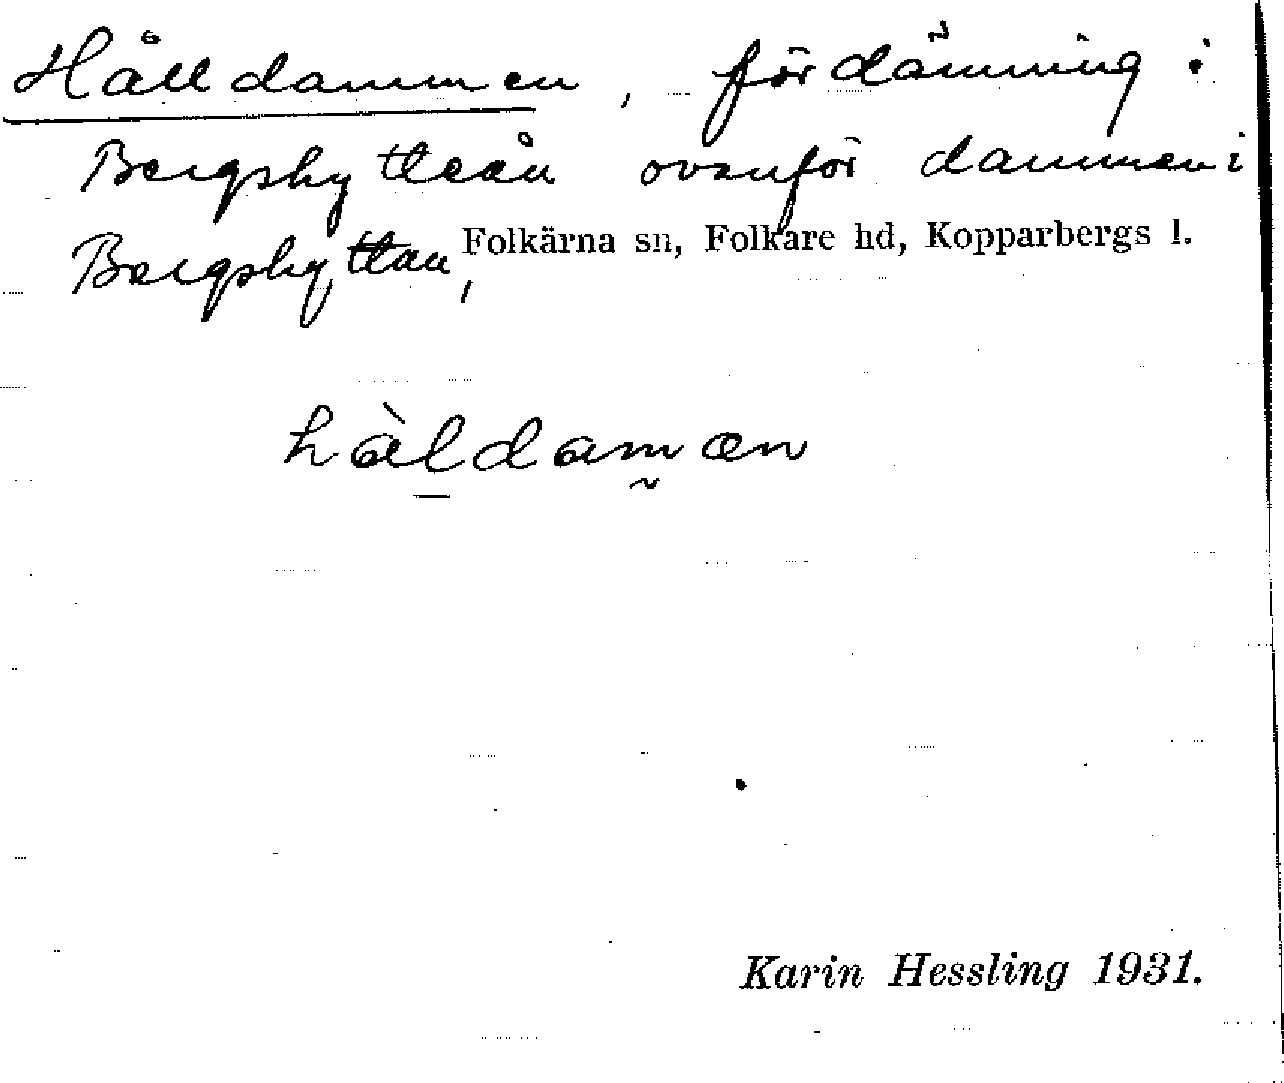 Hålldammen, fördämning i
Bergshytteån ovanför dammen i
Bergshyttan, Folkärna sn, Folkare hd, Kopparbergs l.
hàldamæn
Karin Hessling 1931.